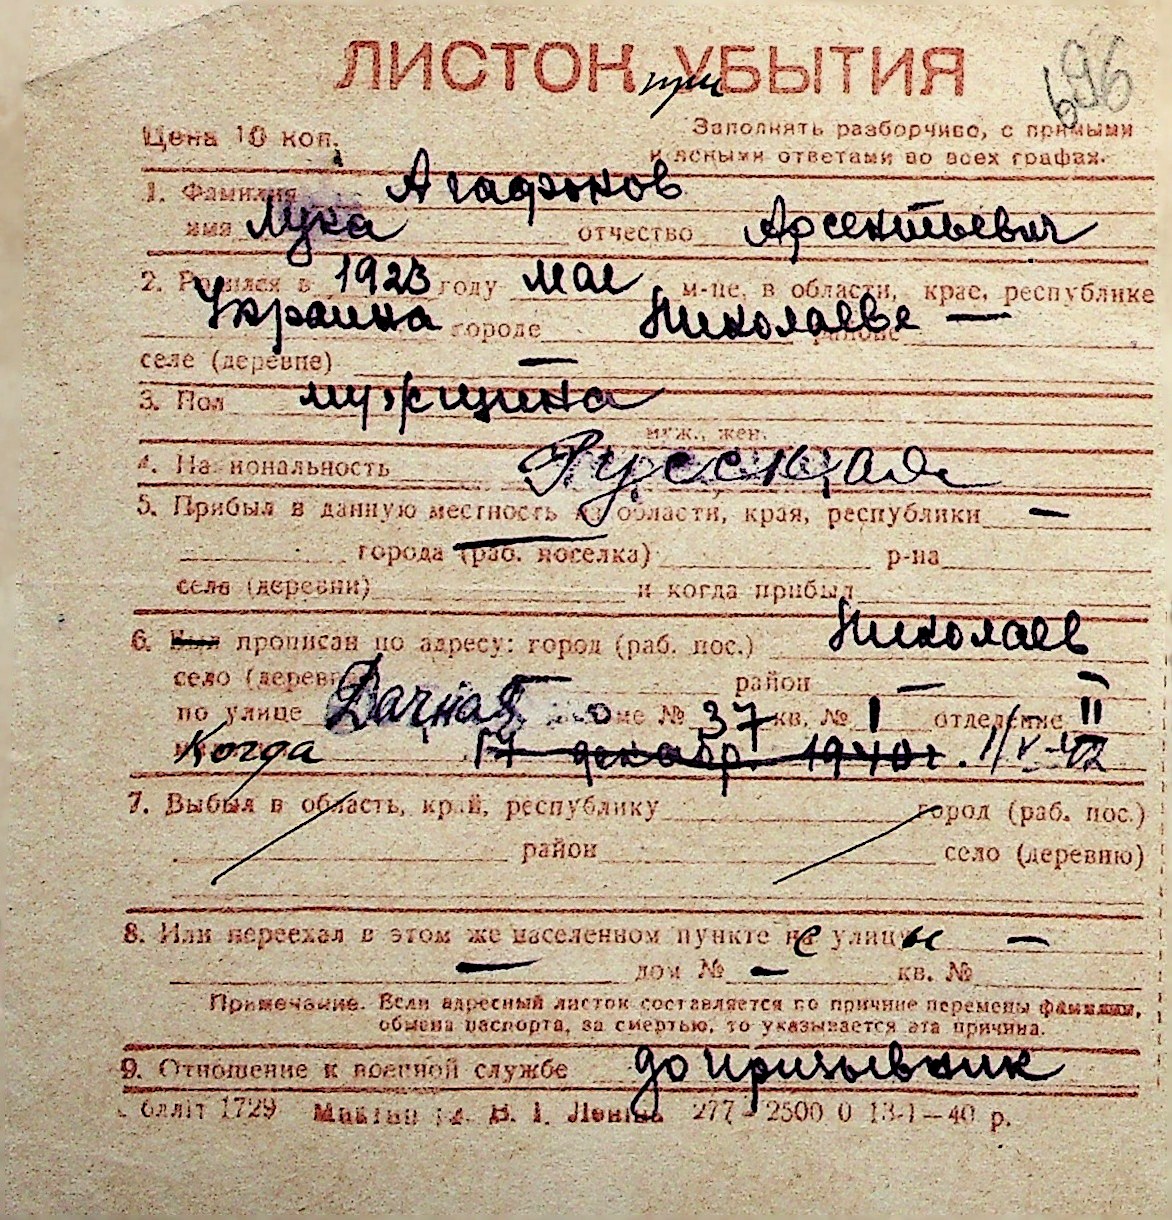 ЛИСТОК при УБЫТИЯ
696
Цена 10 коп.
Заполнять разборчиво, с прямыми
и ясными ответами во всех графах.
1. Фамилия Агафонов
имя Лука отчество Арсентьевич
2. Родился в 1923 году мае м-це, в области, крае, республике
Украина городе Николаеве районе —
селе (деревне) —
3. Пол мужщина
муж., жен.
4. Национальность Русская
5. Прибыл в данную местность из области, края, республики —
города (раб. поселка) р-на
села (деревни) и когда прибыл
6. Был прописан по адресу: город (раб. пос.) Николаев
село (деревня) — район —
по улице Дачная в доме № 37 кв. № 1 отделение II
Когда 17 декабр. 1940г. 1/V-42
7. Выбыл в область, край, республику город (раб. пос.)
район село (деревню)
8. Или переехал в этом же населенном пункте не улицы —
— дом № — кв. №
Примечание. Если адресный листок составляется по причине перемены фамилии,
обмена паспорта, за смертью, то указывается эта причина.
9. Отношение к военной службе допризывник
обллiт 1729 В. I. Ленiна 277 - 2500 0 13-I-40 р.